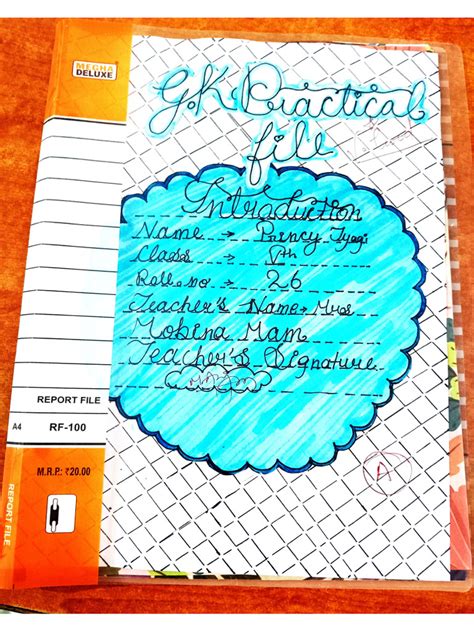 MEGHA
DELUXE
G.K Practical
file
Introduction
Name → Princy Tyagi
Class → Vth
Roll no → 26
Teacher's Name → Mrs
Mobina Mam
Teacher's Signature
REPORT FILE
A4 RF-100
M.R.P.: ₹20.00
REPORT FILE
A